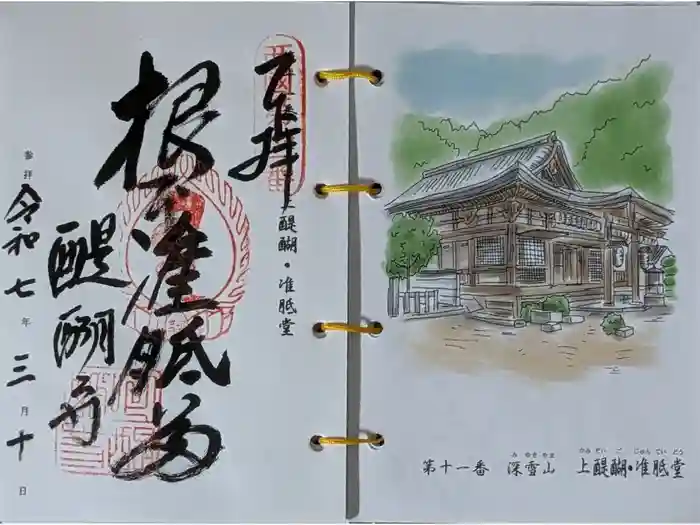 奉拝
上醍醐・准胝堂
根本准胝尊
醍醐寺
参拝 令和七年三月十日
みゆきやま かみだいご じゅんていどう
第十一番 深雪山 上醍醐・准胝堂